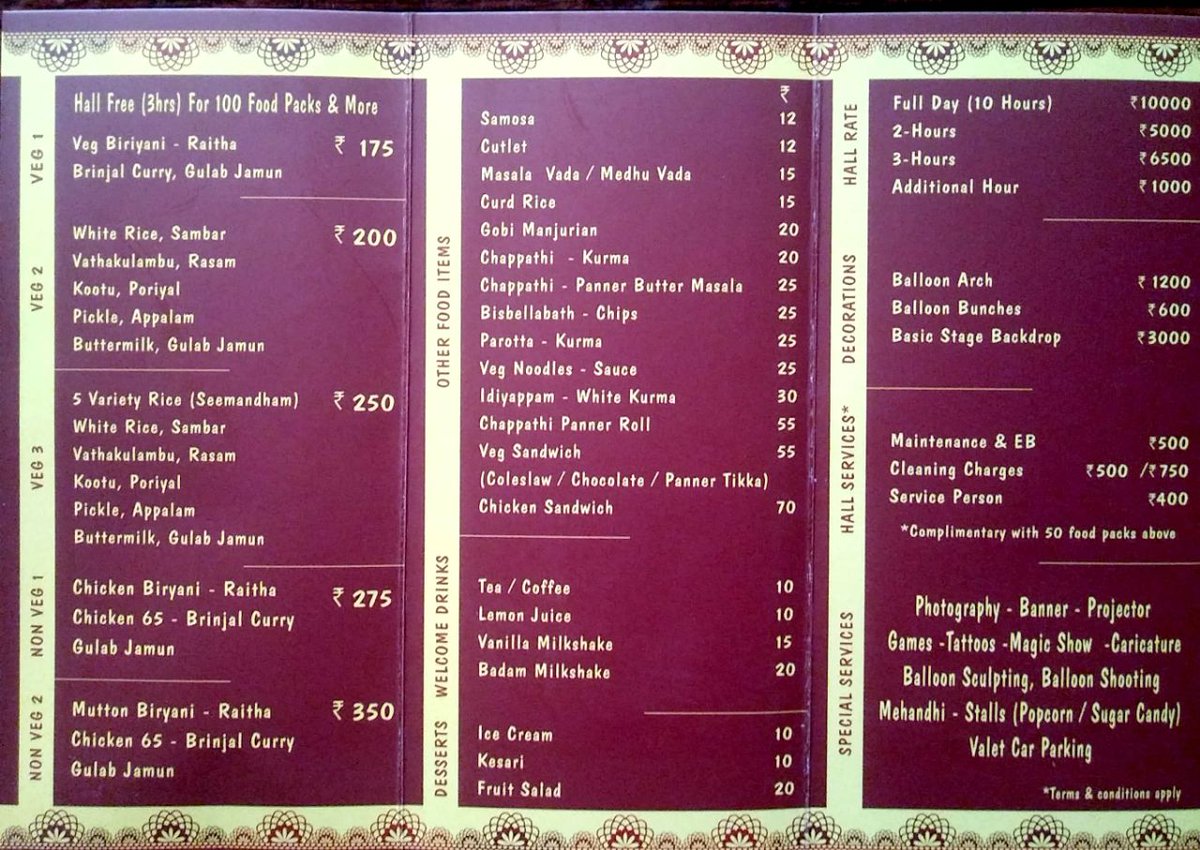 Hall Free (3hrs) For 100 Food Packs & More
VEG 1
Veg Biriyani - Raitha ₹ 175
Brinjal Curry, Gulab Jamun
VEG 2
White Rice, Sambar ₹ 200
Vathakulambu, Rasam
Kootu, Poriyal
Pickle, Appalam
Buttermilk, Gulab Jamun
VEG 3
5 Variety Rice (Seemandham) ₹ 250
White Rice, Sambar
Vathakulambu, Rasam
Kootu, Poriyal
Pickle, Appalam
Buttermilk, Gulab Jamun
NON VEG 1
Chicken Biryani - Raitha ₹ 275
Chicken 65 - Brinjal Curry
Gulab Jamun
NON VEG 2
Mutton Biryani - Raitha ₹ 350
Chicken 65 - Brinjal Curry
Gulab Jamun
OTHER FOOD ITEMS
₹
Samosa 12
Cutlet 12
Masala Vada / Medhu Vada 15
Curd Rice 15
Gobi Manjurian 20
Chappathi - Kurma 20
Chappathi - Panner Butter Masala 25
Bisbellabath - Chips 25
Parotta - Kurma 25
Veg Noodles - Sauce 25
Idiyappam - White Kurma 30
Chappathi Panner Roll 55
Veg Sandwich 55
(Coleslaw / Chocolate / Panner Tikka)
Chicken Sandwich 70
WELCOME DRINKS
Tea / Coffee 10
Lemon Juice 10
Vanilla Milkshake 15
Badam Milkshake 20
DESSERTS
Ice Cream 10
Kesari 10
Fruit Salad 20
HALL RATE
Full Day (10 Hours) ₹10000
2-Hours ₹5000
3-Hours ₹6500
Additional Hour ₹1000
DECORATIONS
Balloon Arch ₹ 1200
Balloon Bunches ₹600
Basic Stage Backdrop ₹3000
HALL SERVICES*
Maintenance & EB ₹500
Cleaning Charges ₹500 /₹750
Service Person ₹400
*Complimentary with 50 food packs above
SPECIAL SERVICES
Photography - Banner - Projector
Games -Tattoos -Magic Show -Caricature
Balloon Sculpting, Balloon Shooting
Mehandhi - Stalls (Popcorn / Sugar Candy)
Valet Car Parking
*Terms & conditions apply